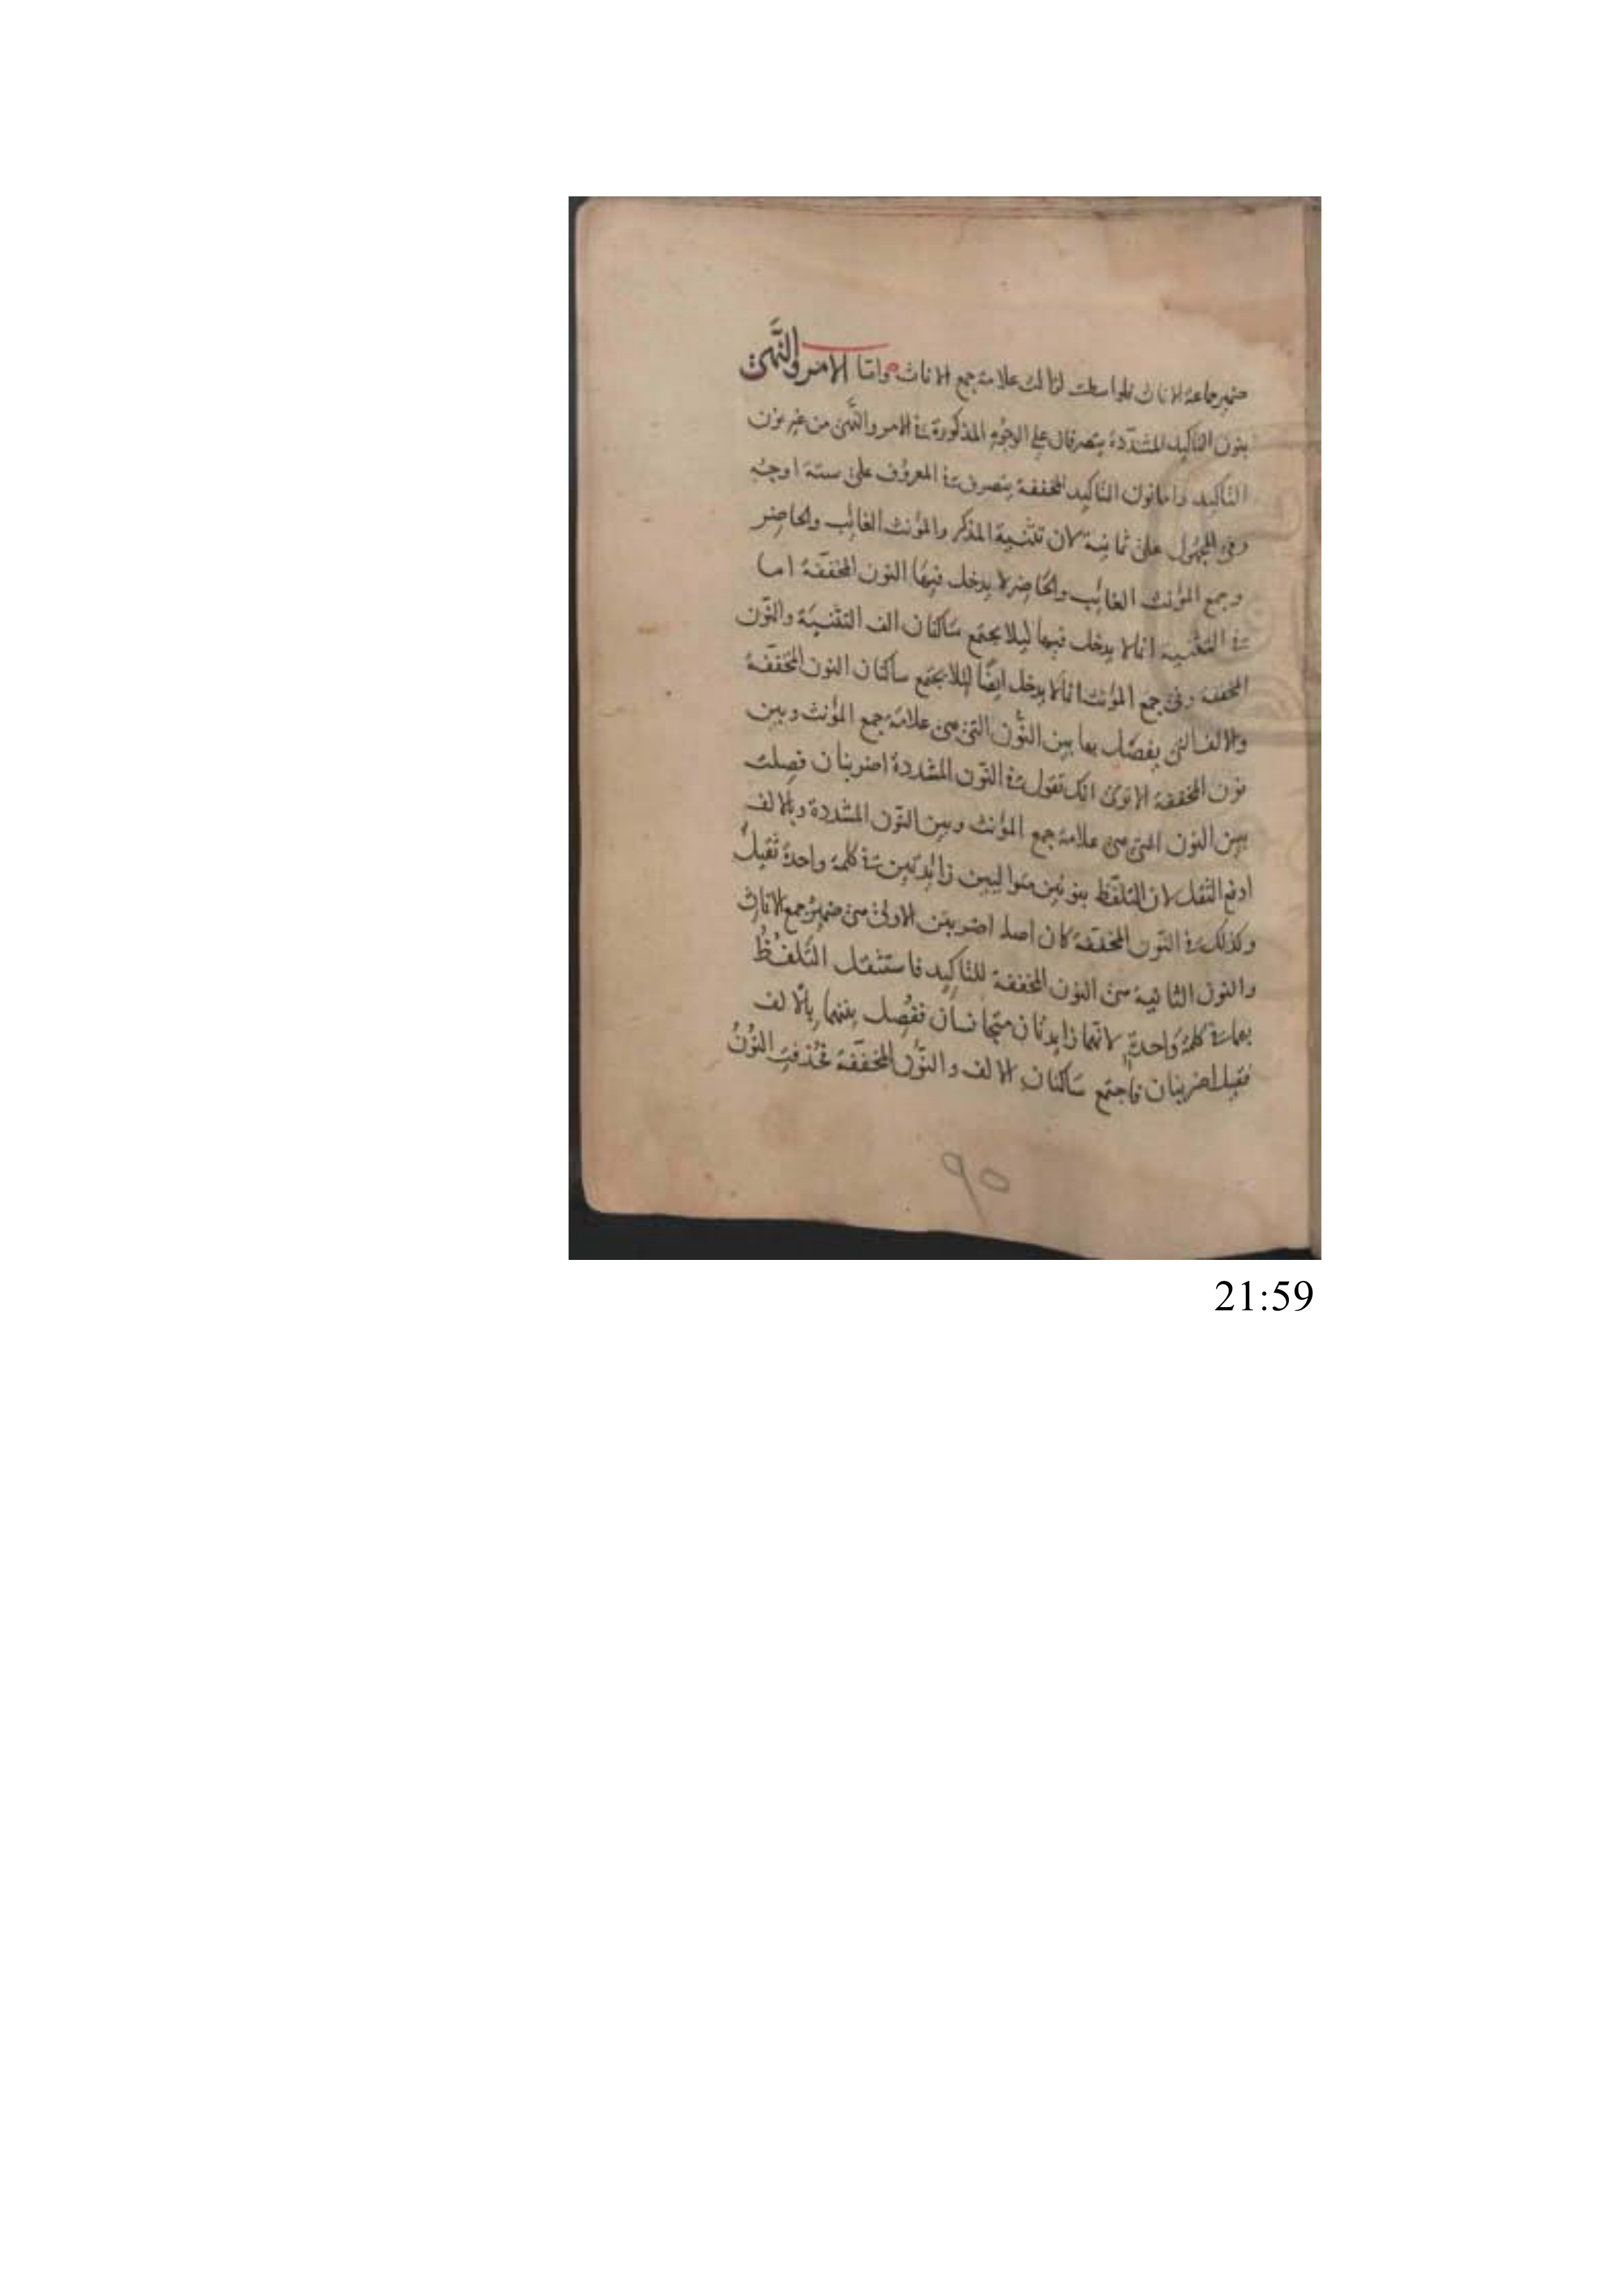 ضمير جماعة الاناث فلو اسقطت لزالت علامة جمع الاناث واما الامر والنهى
بنون التاكيد المشددة يتصرفان على الوجوه المذكورة فى الامر والنهى من غير نون
التاكيد واما نون التاكيد المخففة يتصرف فى المعروف على ستة اوجه
وفى المجهول على ثمانية لان تثنية المذكر والمؤنث الغائب والحاضر
وجمع المؤنث الغائب والحاضر لا يدخل فيها النون المخففة اما
فى التثنية انما لا يدخل فيها ليلا يجتمع ساكنان الف التثنية والنون
المخففة وفى جمع المؤنث انما لا يدخل ايضا لئلا يجتمع ساكنان النون المخففة
والالف التى يفصل بها بين النون التى هى علامة جمع المؤنث وبين
نون المخففة الا ترى انك تقول فى النون المشددة اضربنان فصلت
بين النون التى هى علامة جمع المؤنث وبين النون المشددة وبالالف
ادفع الثقل لان التلفظ بنونين متواليين زائدتين فى كلمة واحدة ثقيل
وكذلك فى النون المخففة كان اصله اضربنن الاولى هى ضمير جمع الاناث
والنون الثانية هى النون المخففة للتاكيد فاستثقل التلفظ
بهما فى كلمة واحدة لانهما زايدتان متجانسان ففصل بينهما بالالف
فقيل اضربنان فاجتمع ساكنان الالف والنون المخففة فحذفت النون
٩٥
21:59